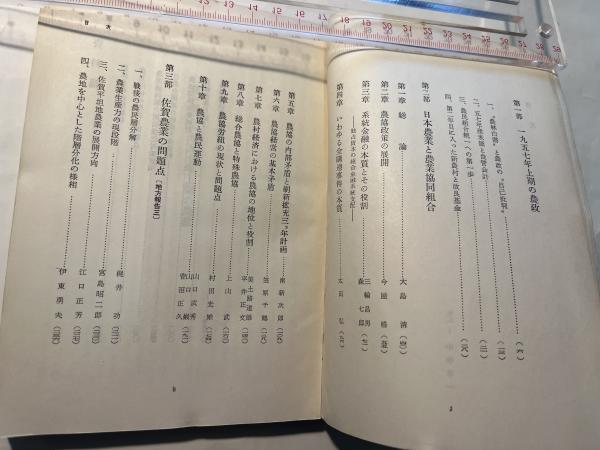 第一部 一九五七年上期の農政
一、〝農林白書〟と農政の〝自己批判〟
二、五七年産米価と食管会計
三、農民組合統一への第一歩
四、第二年目に入った新農村と改良基金
第二部 日本農業と農業協同組合
第一章 総論 大島清
第二章 農協政策の展開 今
第三章 系統金融の本質とその役割 三輪昌男
森七郎
第四章 いわゆる全購連事件の本質 太田弘
目次
第五章 農協の内部矛盾と刷新拡充三ヵ年計画 南新次郎
第六章 農協経営の基本矛盾 笠原千鶴
第七章 農村経済における農協の地位と役割 美土路達雄
第八章 総合農協と特殊農協 平井正文
第九章 農協労組の現状と問題点 上山武
村田宏雄
第十章 農協と農民運動 山口武秀
菅沼正久
第三部 佐賀農業の問題点(地方報告三)
一、戦後の農民層分解 梶井功
二、農業生産力の現段階 宮島昭二郎
三、佐賀平坦地農業の展開方向 江口正芳
四、農地を中心とした階層分化の様相 伊東勇夫